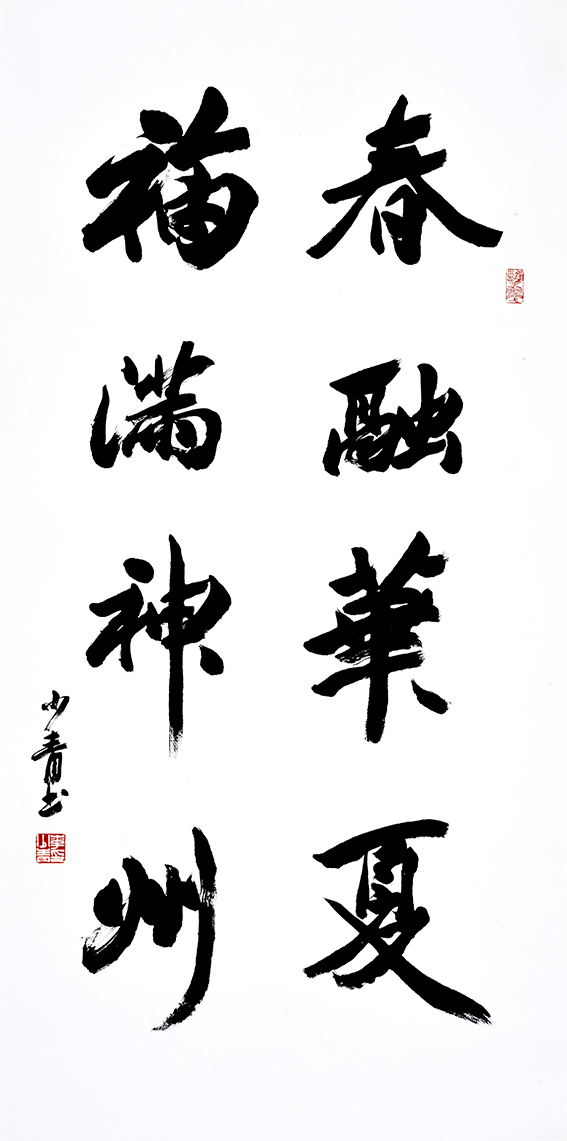 春融華夏
福滿神州
少青书